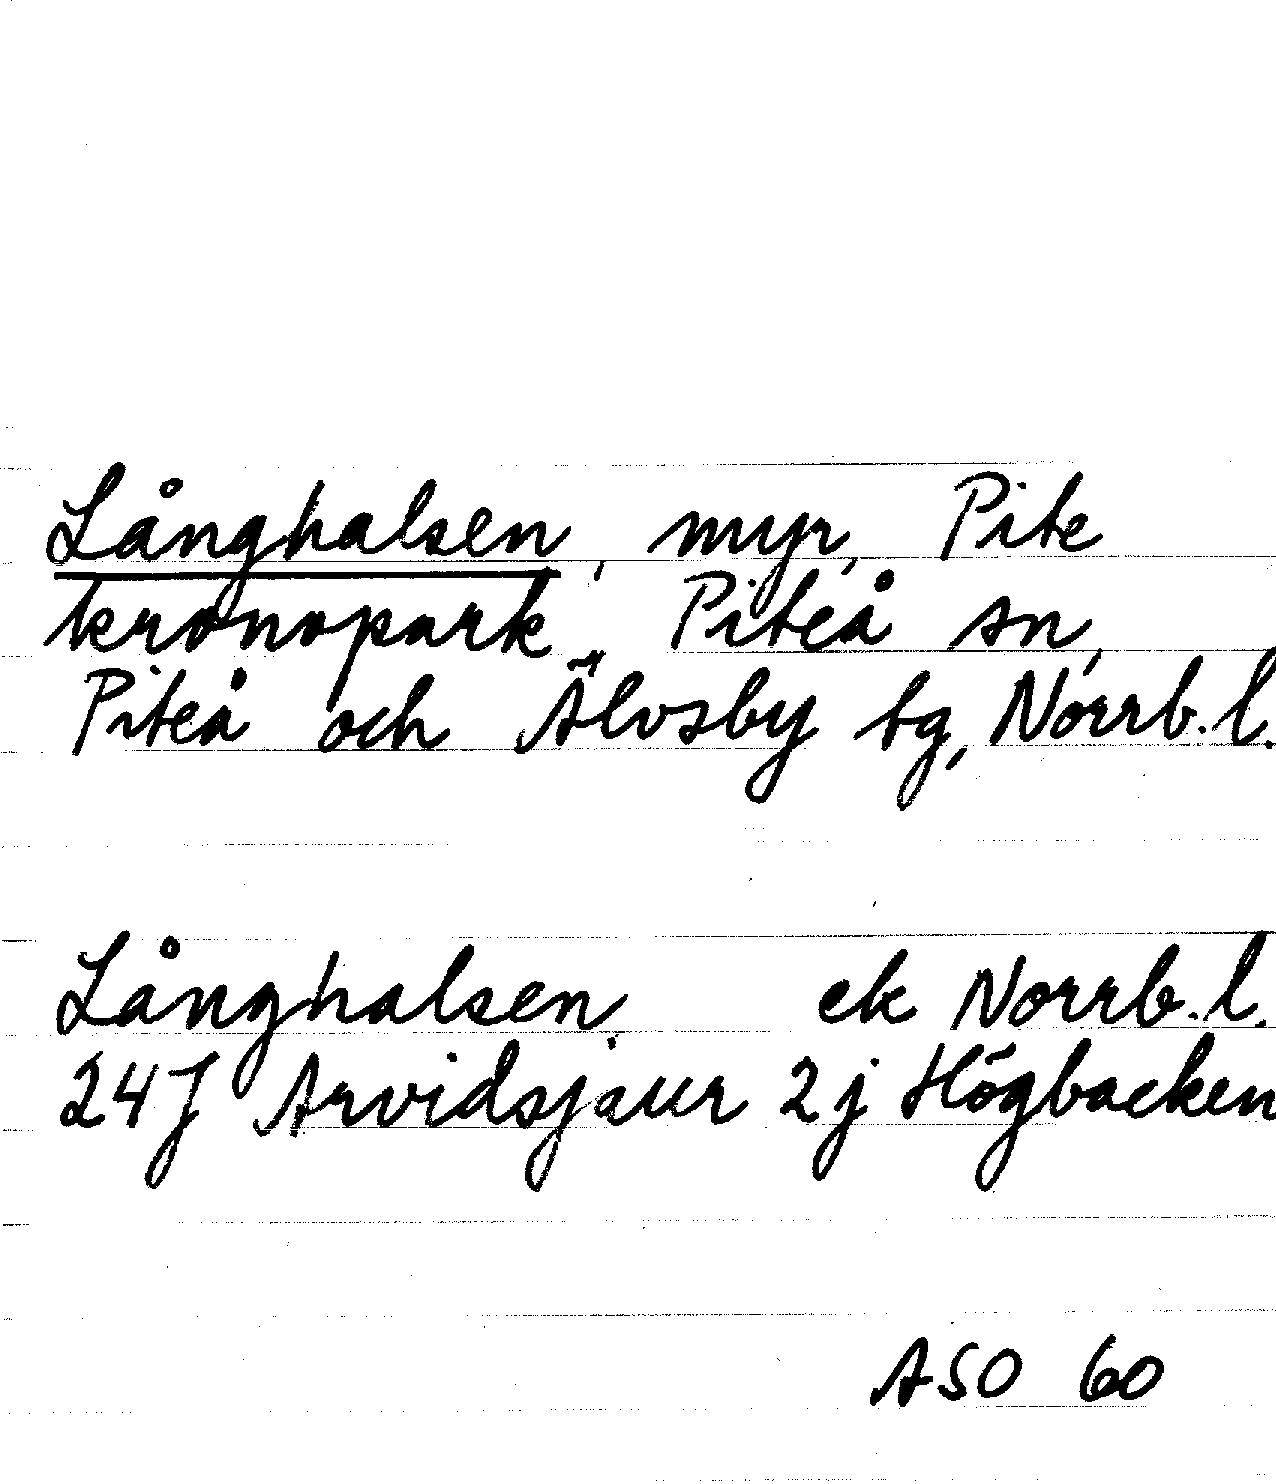 Långhalsen, myr, Pite
kronopark, Piteå sn,
Piteå och Älvsby tg, Norrb.l.
Långhalsen, ek Norrb.l.
24J Arvidsjaur 2j Högbacken
ASO 60